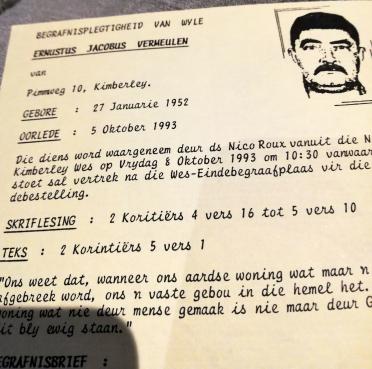 BEGRAFNISPLEGTIGHEID VAN WYLE
ERNUSTUS JACOBUS VERMEULEN
van
Pimmweg 10, Kimberley.
GEBORE : 27 Januarie 1952
OORLEDE : 5 Oktober 1993
Die diens word waargeneem deur ds Nico Roux vanuit die N
Kimberley Wes op Vrydag 8 Oktober 1993 om 10:30 vanwaar
stoet sal vertrek na die Wes-Eindebegraafplaas vir die
debestelling.
SKRIFLESING : 2 Koritiërs 4 vers 16 tot 5 vers 10
TEKS : 2 Korintiërs 5 vers 1
"Ons weet dat, wanneer ons aardse woning wat maar n
afgebreek word, ons n vaste gebou in die hemel het.
woning wat nie deur mense gemaak is nie maar deur G
it bly ewig staan."
EGRAFNISBRIEF :